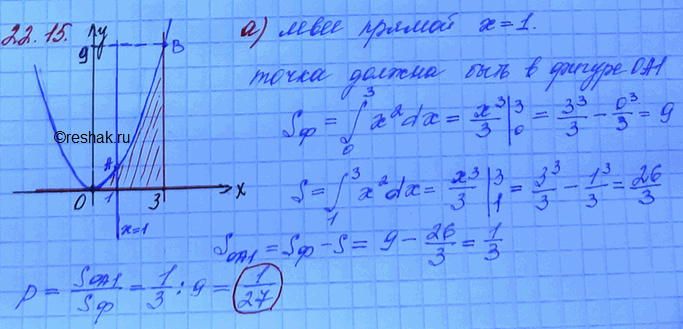 22.15.
y
9
B
A
0
1
3
x
x=1
©reshak.ru
а) левее прямой x=1.
точка должна быть в фигуре OA1
Sф = ∫₀³ x²dx = x³/3 |₀³ = 3³/3 − 0³/3 = 9
S = ∫₁³ x²dx = x³/3 |₁³ = 3³/3 − 1³/3 = 26/3
S_OA1 = Sф − S = 9 − 26/3 = 1/3
p = S_OA1/Sф = 1/3 : 9 = 1/27